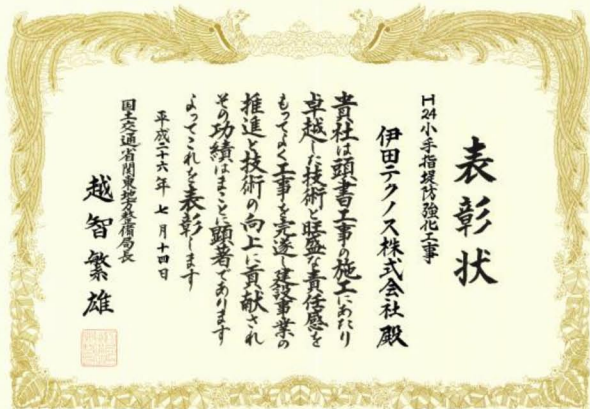 表彰状
H24小手指堤防強化工事
伊田テクノス株式会社 殿
貴社は頭書工事の施工にあたり
卓越した技術と旺盛な責任感を
もってよく工事を完遂し建設事業の
推進と技術の向上に貢献され
その功績はまことに顕著であります
よってこれを表彰します
平成二十六年 七月十四日
国土交通省関東地方整備局長
越智繁雄